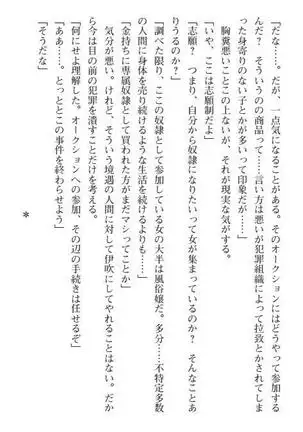 「だな……。だが、一点気になることがある。そのオークションにはどうやって参加する
んだ？　そういうのの商品って……言い方は悪いが犯罪組織によって拉致とかされてしま
った身寄りのない子とかが多いって印象だが……」
　胸糞悪いことこの上ないが、それが現実な気がする。
「いや、ここは志願制だよ」
「志願？　つまり、自分から奴隷になりたいって女が集まっているのか？　そんなことあ
りうるのか？」
「調べた限り、ここの奴隷として参加している女の大半は風俗嬢だ。多分……不特定多数
の人間に身体を売り続けるような生活を続けるよりも……」
「金持ちに専属奴隷として買われた方がまだマシってことか」
　気分が悪い。が、そういう境遇の人間に対して伊吹にしてやれることはない。だか
ら今は目の前の犯罪を潰すことだけを考える。
「何にせよ理解した。オークションへの参加、その辺の手続きは任せるぞ」
「ああ……。とっととこの事件を終わらせよう」
「そうだな」
＊